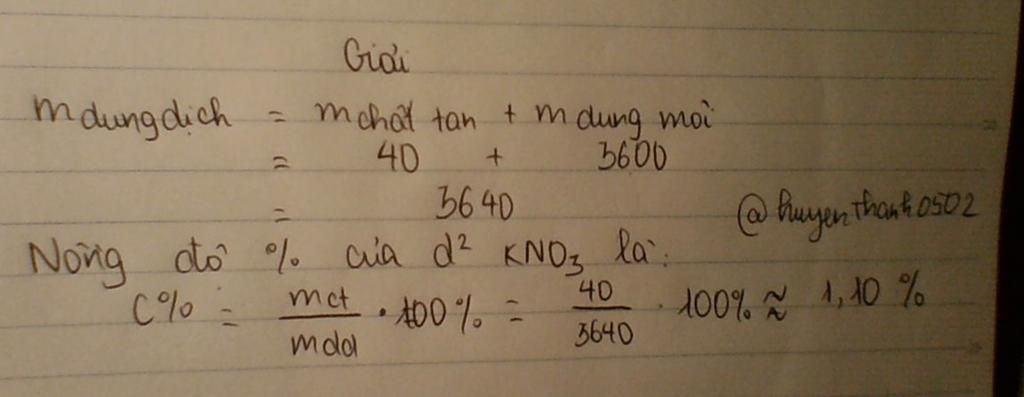 Giải
m dung dịch = m chất tan + m dung môi
= 40 + 3600
= 3640
@huyenthanh0502
Nồng độ % của d² KNO₃ là:
C% = mct/mdd . 100% = 40/3640 . 100% ≈ 1,10 %